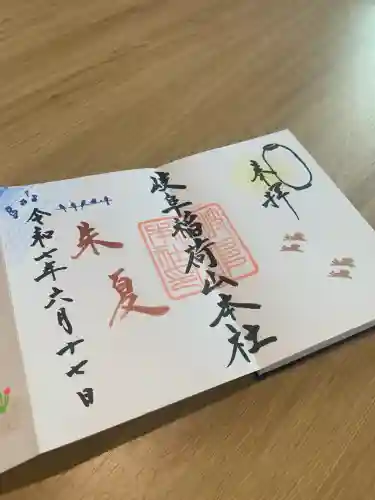 奉拝
岐阜稲荷山本社
朱夏
令和七年六月十七日